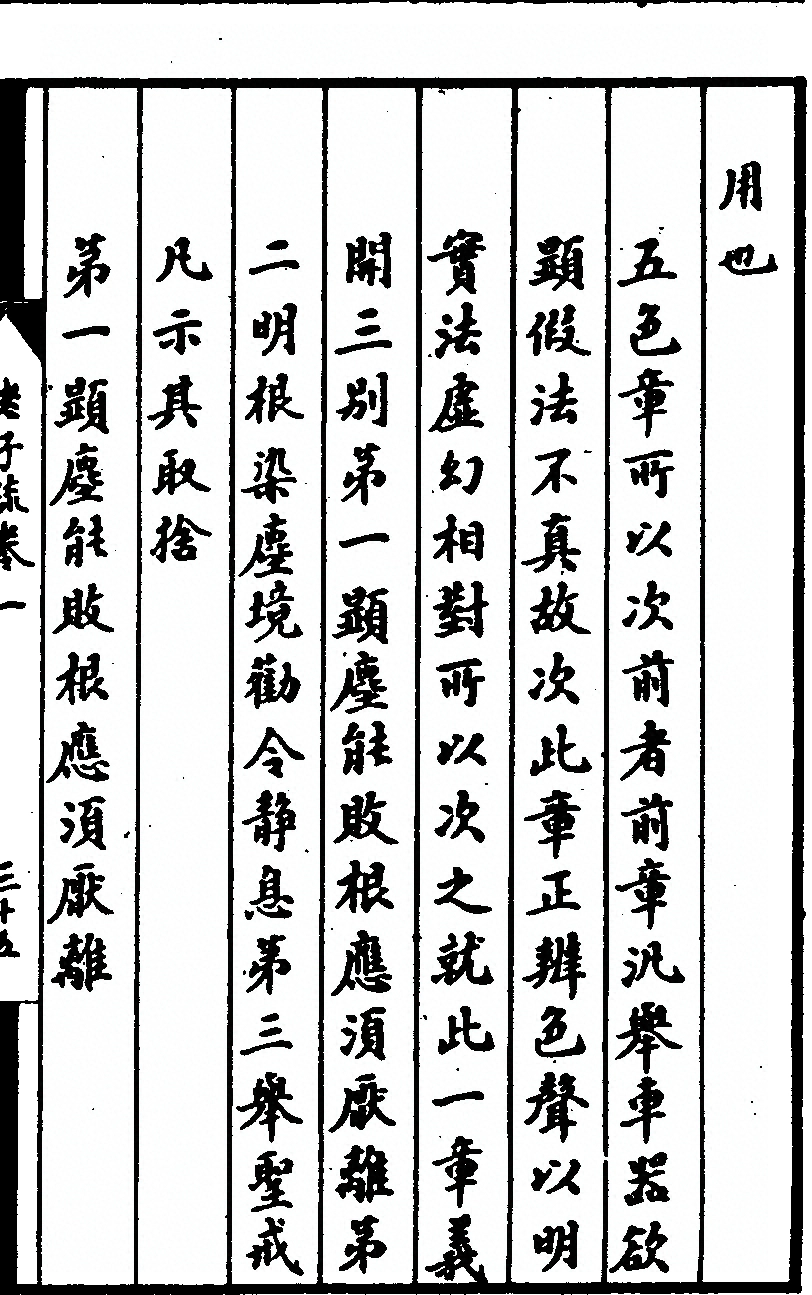 用也
五色章所以次前者前章汎舉車器欲
顯假法不真故次此章正辨色聲以明
實法虛幻相對所以次之就此一章義
開三別第一顯塵能敗根應須厭離第
二明根染塵境勸令靜息第三舉聖戒
凡示其取捨
第一顯塵能敗根應須厭離
老子疏卷一
三十五